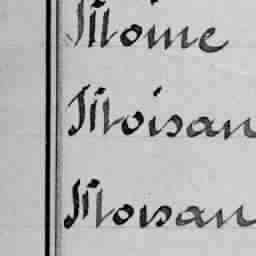 Moine
Moisan
Moisan